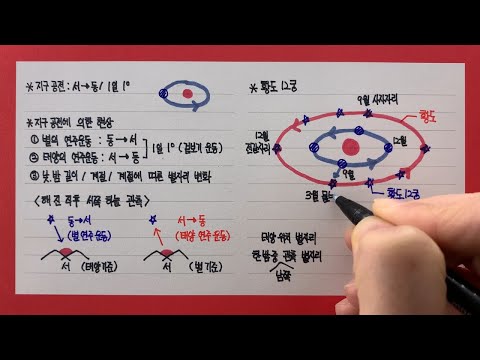 * 지구 공전 : 서→동 / 1일 1°
* 지구 공전에 의한 현상
① 별의 연주운동 : 동→서
② 태양의 연주운동 : 서→동
1일 1° (겉보기 운동)
③ 낮, 밤 길이 / 계절 / 계절에 따른 별자리 변화
<해 진 직후 서쪽 하늘 관측>
동→서
(별 연주 운동)
서 (태양 기준)
서→동
(태양 연주 운동)
서 (별 기준)
* 황도 12궁
9월 사자자리
황도
12월
전갈자리
12월
9월
3월
황도 12궁
태양 위치 별자리
한밤중 관측 별자리
남쪽